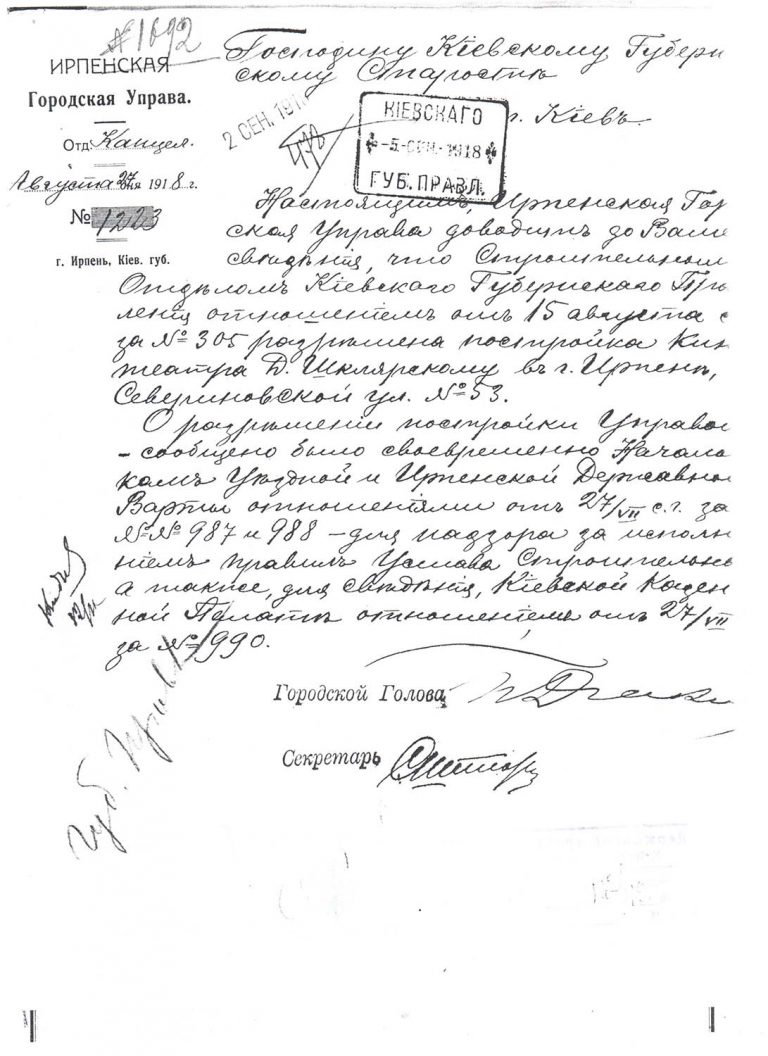 №1692
ИРПЕНСКАЯ
Городская Управа.
Отд. Канцел.
Августа 27 дня 1918 г.
№ 1223
г. Ирпень, Кіев. губ.
Господину Кіевскому Губерн
скому Старостѣ
г. Кіевъ.
2 СЕН. 191
КІЕВСКАГО
-5- СЕН. 1918
ГУБ. ПРАВЛ.
Настоящимъ, Ирпенская Гор
ская Управа доводитъ до Ваше
свѣдѣнія, что Строительным
Отдѣломъ Кіевскаго Губернскаго Пра
леніа отношеніемъ отъ 15 августа с
за № 305 разрѣшена постройка Кин
театра Д. Шклярскому въ г. Ирпенѣ,
Севериновской ул. № 53.
О разрѣшеніи постройки Управою
- сообщено было своевременно Началь
камъ Уѣздной и Ирпенской Державно
Варты отношеніями отъ 27/VII с.г. за
№№ 987 и 988 - для надзора за исполн
ніемъ правилъ Устава Строительн
а также, для свѣдѣнія, Кіевской Казен
ной Палатѣ отношеніемъ отъ 27/VII
за № 990.
Городской Голова
Секретарь
Губ. Правл